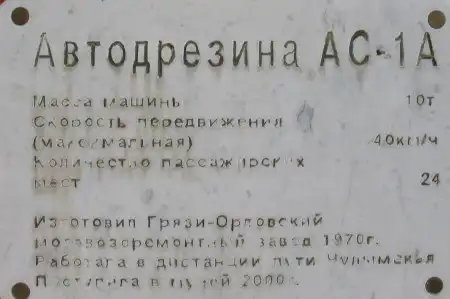 Автодрезина АС-1А
Масса машины 10т
Скорость передвижения
(максимальная) 40км/ч
Количество пассажирских
мест 24
Изготовил Грязи-Орловский
мотовозоремонтный завод 1970г.
Работала в дистанции пути Чулымская
Поступила в музей 2000г.